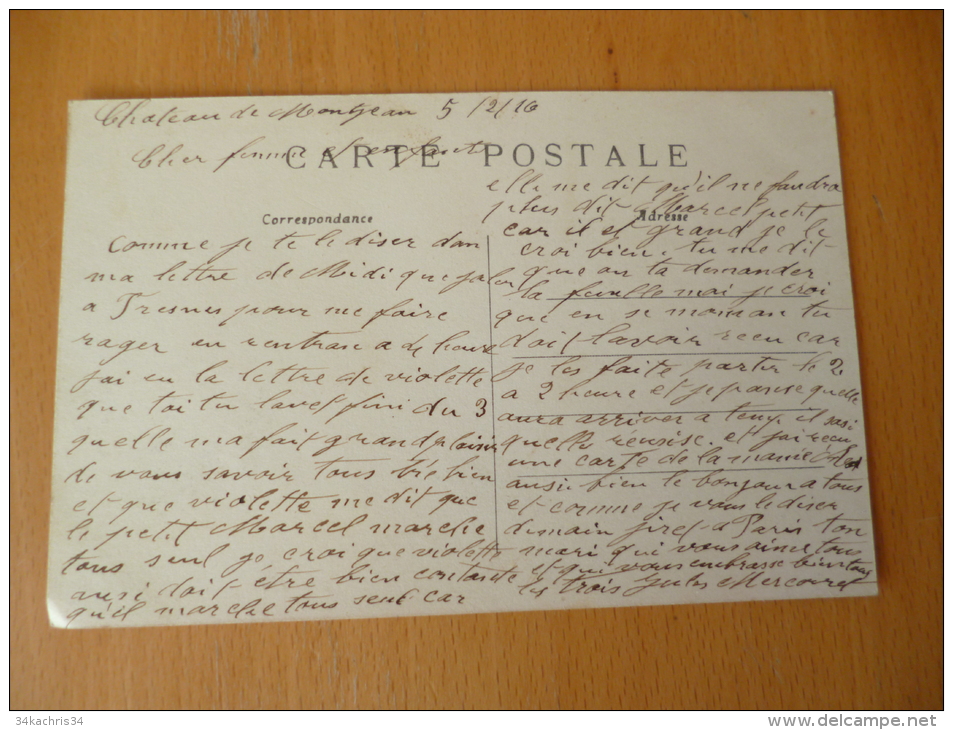 Chateau de Montjean 5/2/16
Cher femme et enfants
CARTE POSTALE
Correspondance
comme je te le diser dan
ma lettre de Midi que
a Fresnes pour me faire
rager en rentran a de heure
jai eu la lettre de violette
que toi tu lavet fini du 3
quelle ma fait grand plaisir
de vous savoir tous bien
et que violette me dit que
le petit Marcel marche
tous seul je croi que violette
doit être bien contante
qu'il marche tous seul car
Adresse
elle me dit qu'il ne faudra
plus dit a Marcel petit
car il et grand je le
croi bien. tu me dit
que on ta demander
la feuille mai je croi
que en se moman tu
doit lavoir recu car
je les faite partir le 2
a 2 heure et je panse quelle
aura arriver a temp il
quelle réusise. et jai recu
une carte de la
ausi bien le bonjour a tous
et comme je vous le diser
demain a Paris ton
mari qui vous aime tous
et qui vous embrasse bien tous
les trois Jules
34kachris34
www.delcampe.net